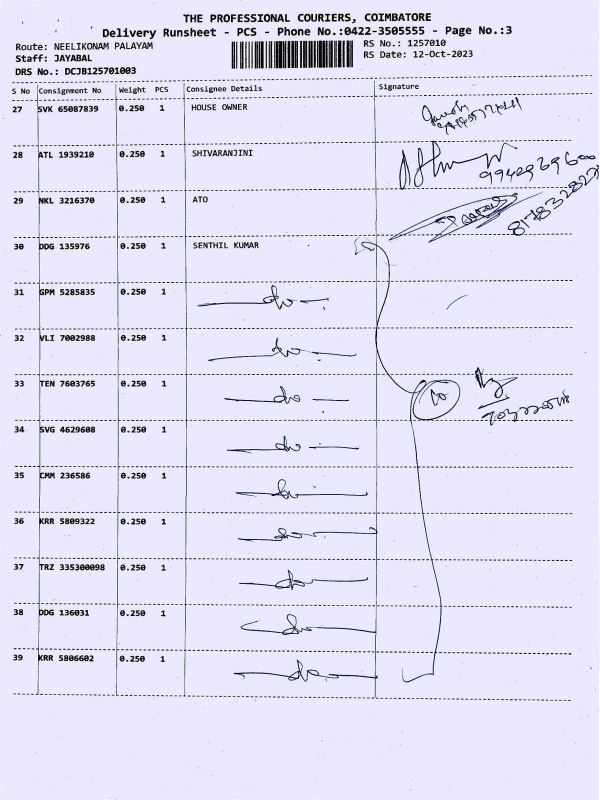 THE PROFESSIONAL COURIERS, COIMBATORE
Delivery Runsheet - PCS - Phone No.:0422-3505555 - Page No.:3
Route: NEELIKONAM PALAYAM
RS No.: 1257010
Staff: JAYABAL
RS Date: 12-Oct-2023
DRS No.: DCJB125701003
S No Consignment No Weight PCS Consignee Details Signature
27 SVK 65087839 0.250 1 HOUSE OWNER
28 ATL 1939210 0.250 1 SHIVARANJINI
29 NKL 3216370 0.250 1 ATO
30 DDG 135976 0.250 1 SENTHIL KUMAR
31 GPM 5285835 0.250 1 do
32 VLI 7002988 0.250 1 do
33 TEN 7603765 0.250 1 do
34 SVG 4629608 0.250 1 do
35 CMM 236586 0.250 1 do
36 KRR 5809322 0.250 1 do
37 TRZ 335300098 0.250 1 do
38 DDG 136031 0.250 1 do
39 KRR 5806602 0.250 1 do